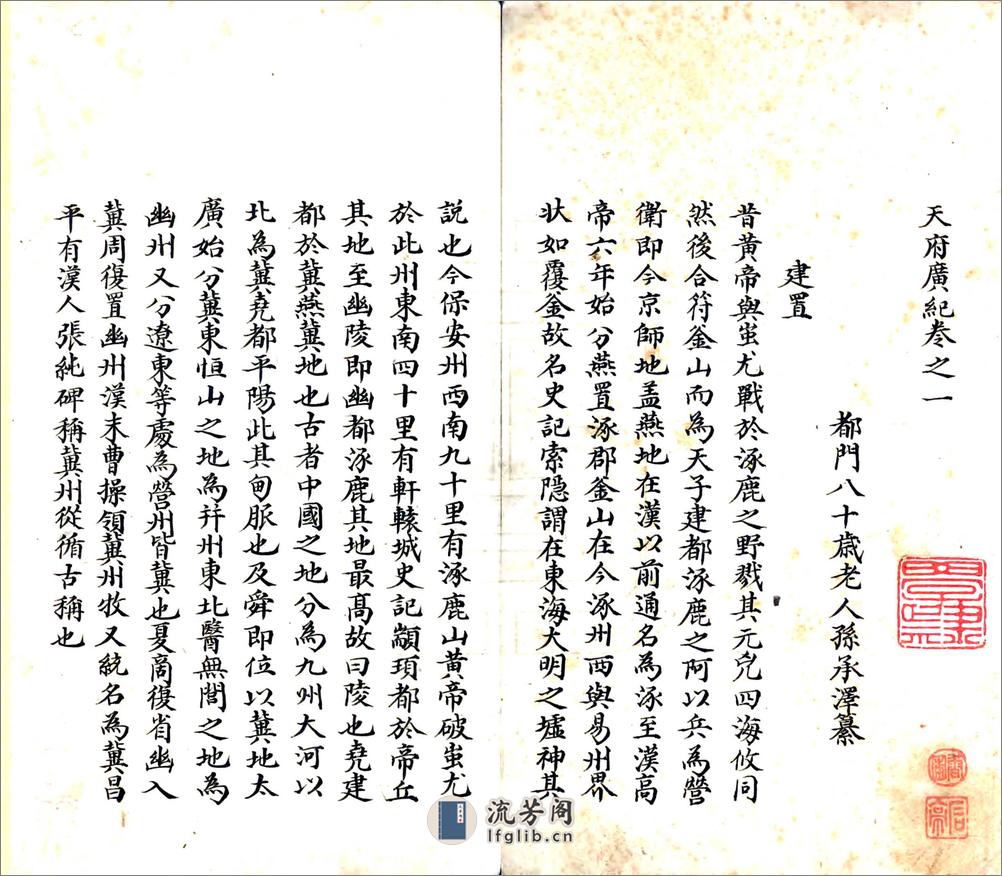 天府廣紀卷之一
都門八十歲老人孫承澤纂
建置
昔黃帝與蚩尤戰於涿鹿之野戮其元兇四海攸同
然後合符釜山而為天子建都涿鹿之阿以兵為營
衛即今京師地蓋燕地在漢以前通名為涿至漢高
帝六年始分燕置涿郡釜山在今涿州西與易州界
狀如覆釜故名史記索隱謂在東海大明之墟神其
說也今保安州西南九十里有涿鹿山黃帝破蚩尤
於此州東南四十里有軒轅城史記顓頊都於帝丘
其地至幽陵即幽都涿鹿其地最高故曰陵也堯建
都於冀燕冀地也古者中國之地分為九州大河以
北為冀堯都平陽此其甸服也及舜即位以冀地太
廣始分冀東恒山之地為并州東北醫無閭之地為
幽州又分遼東等處為營州皆冀也夏商復省幽入
冀周復置幽州漢末曹操領冀州牧又統名為冀昌
平有漢人張純碑稱冀州從循古稱也
流芳阁
lfglib.cn